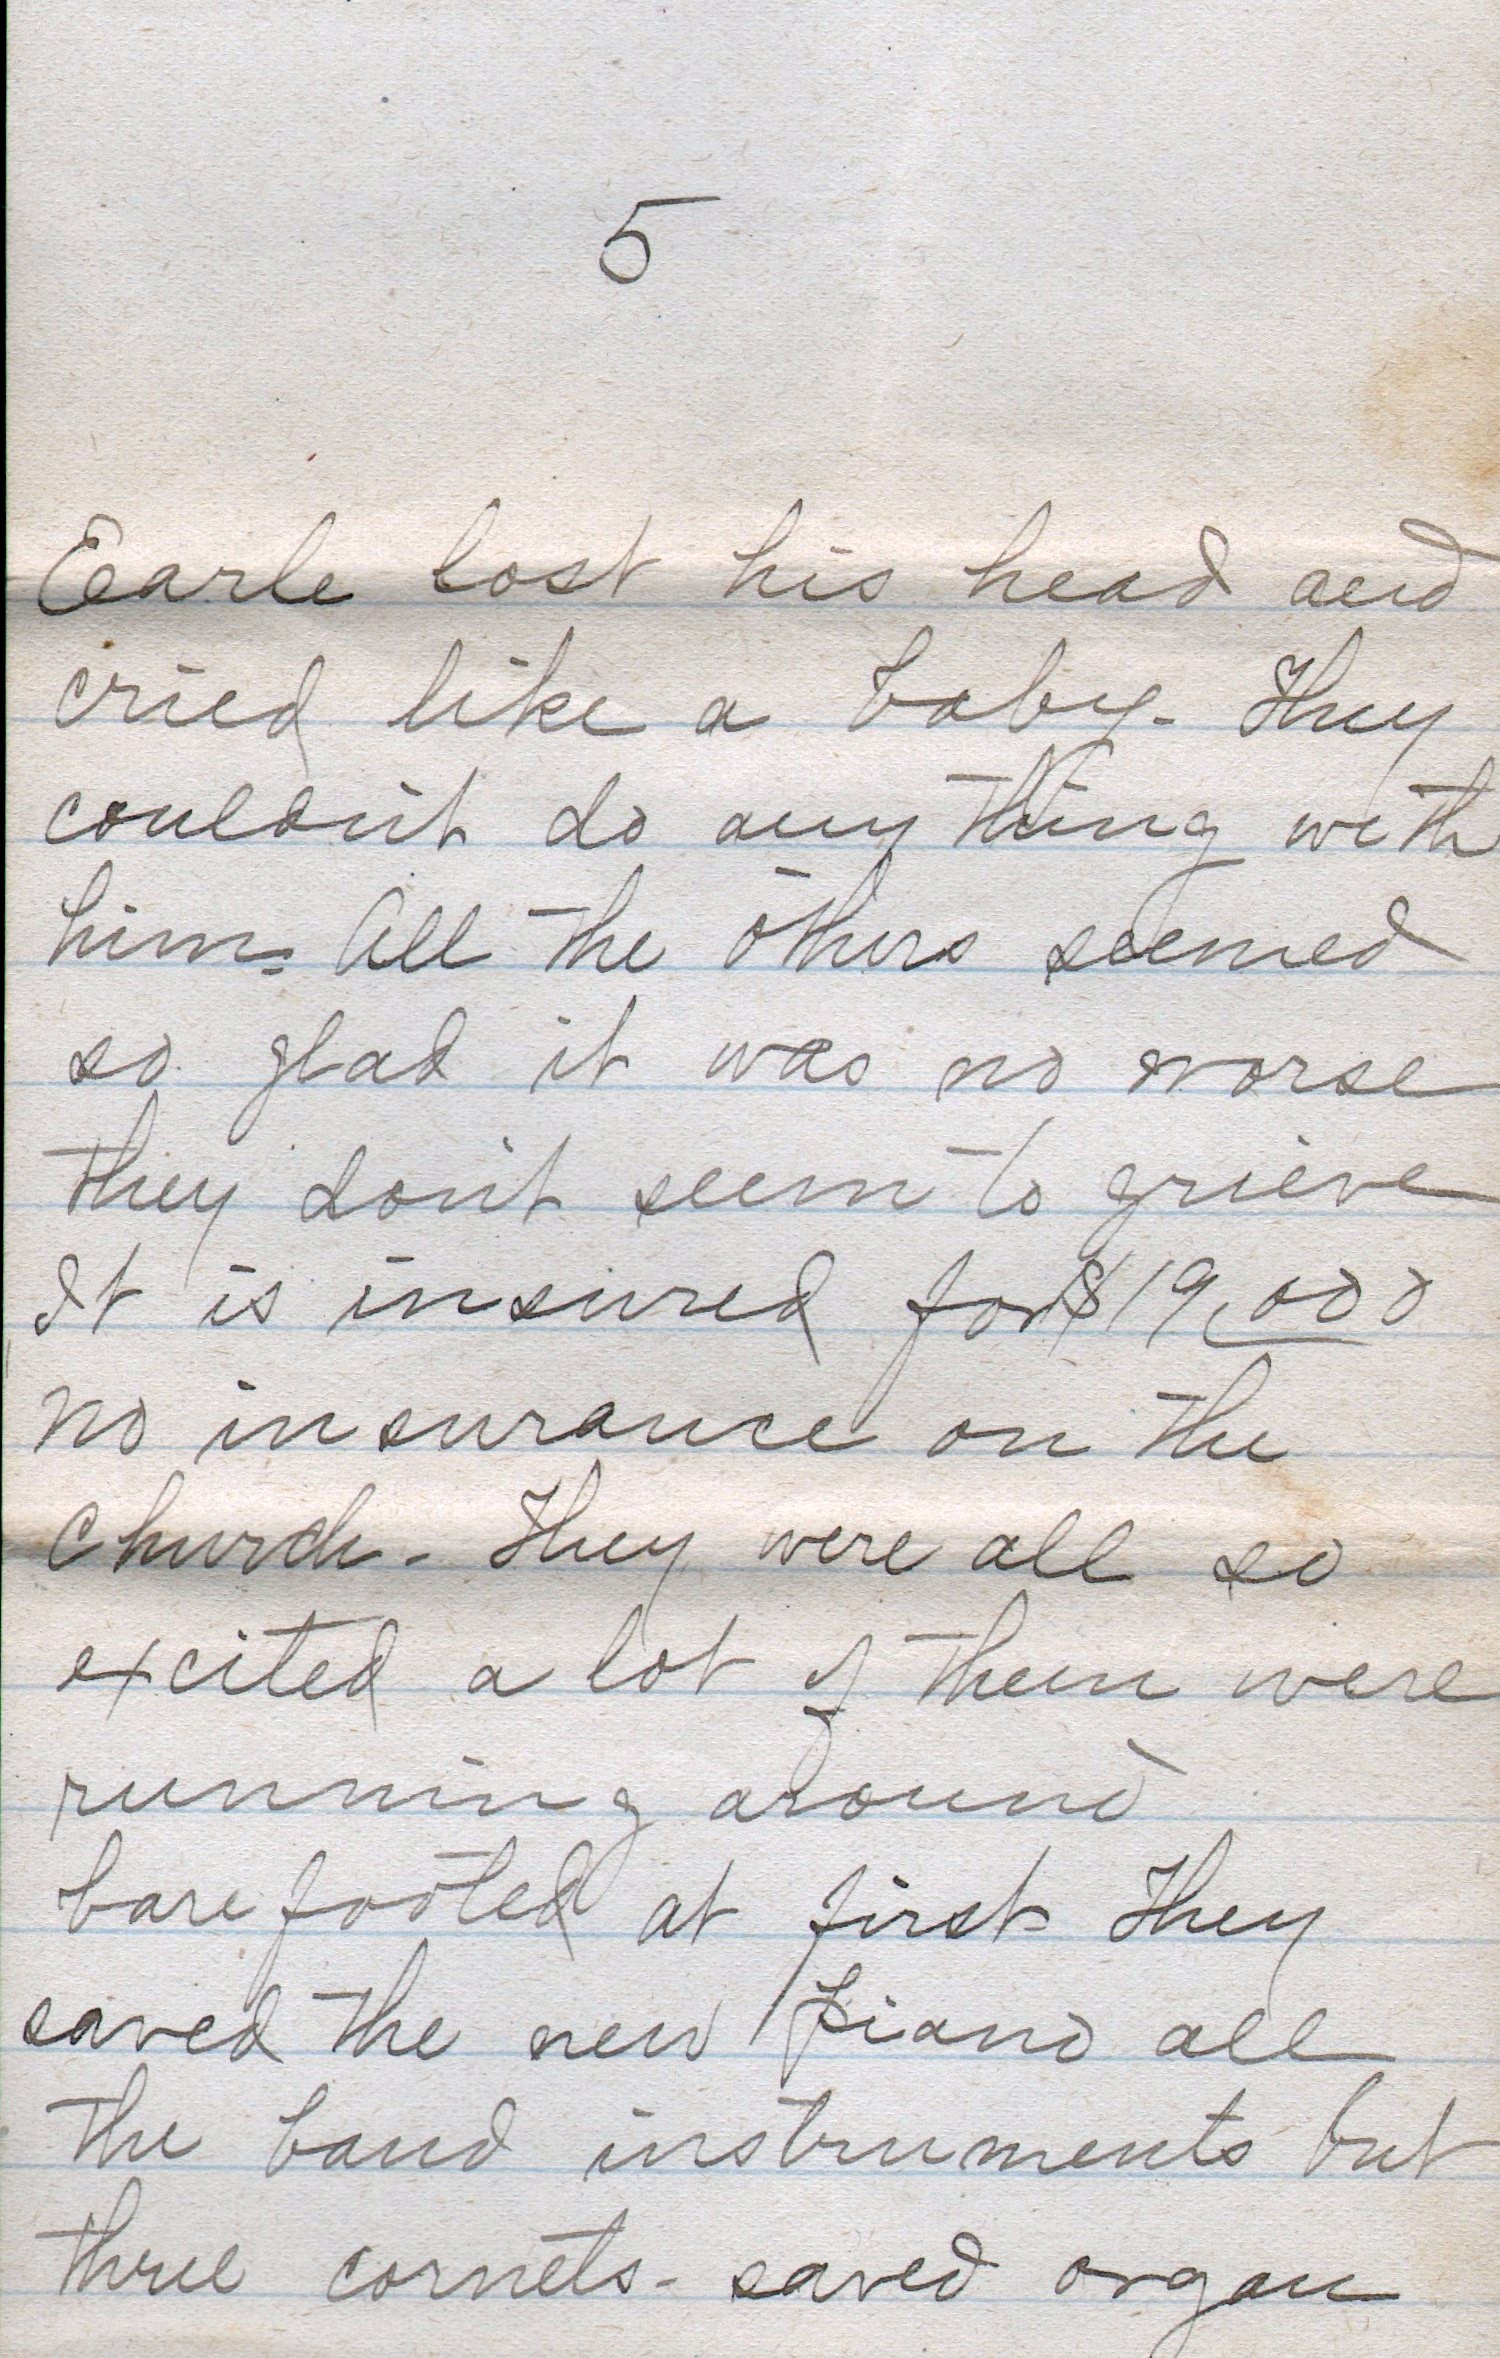 5
Earle lost his head and
cried like a baby - They
couldn't do any thing with
him - All the others seemed
so glad it was no worse
they don't seem to grieve
It is insured for $19,000
no insurance on the
Church - They were all so
excited a lot of them were
running around
bare footed at first They
saved the new piano all
the band instruments but
three cornets - saved organ